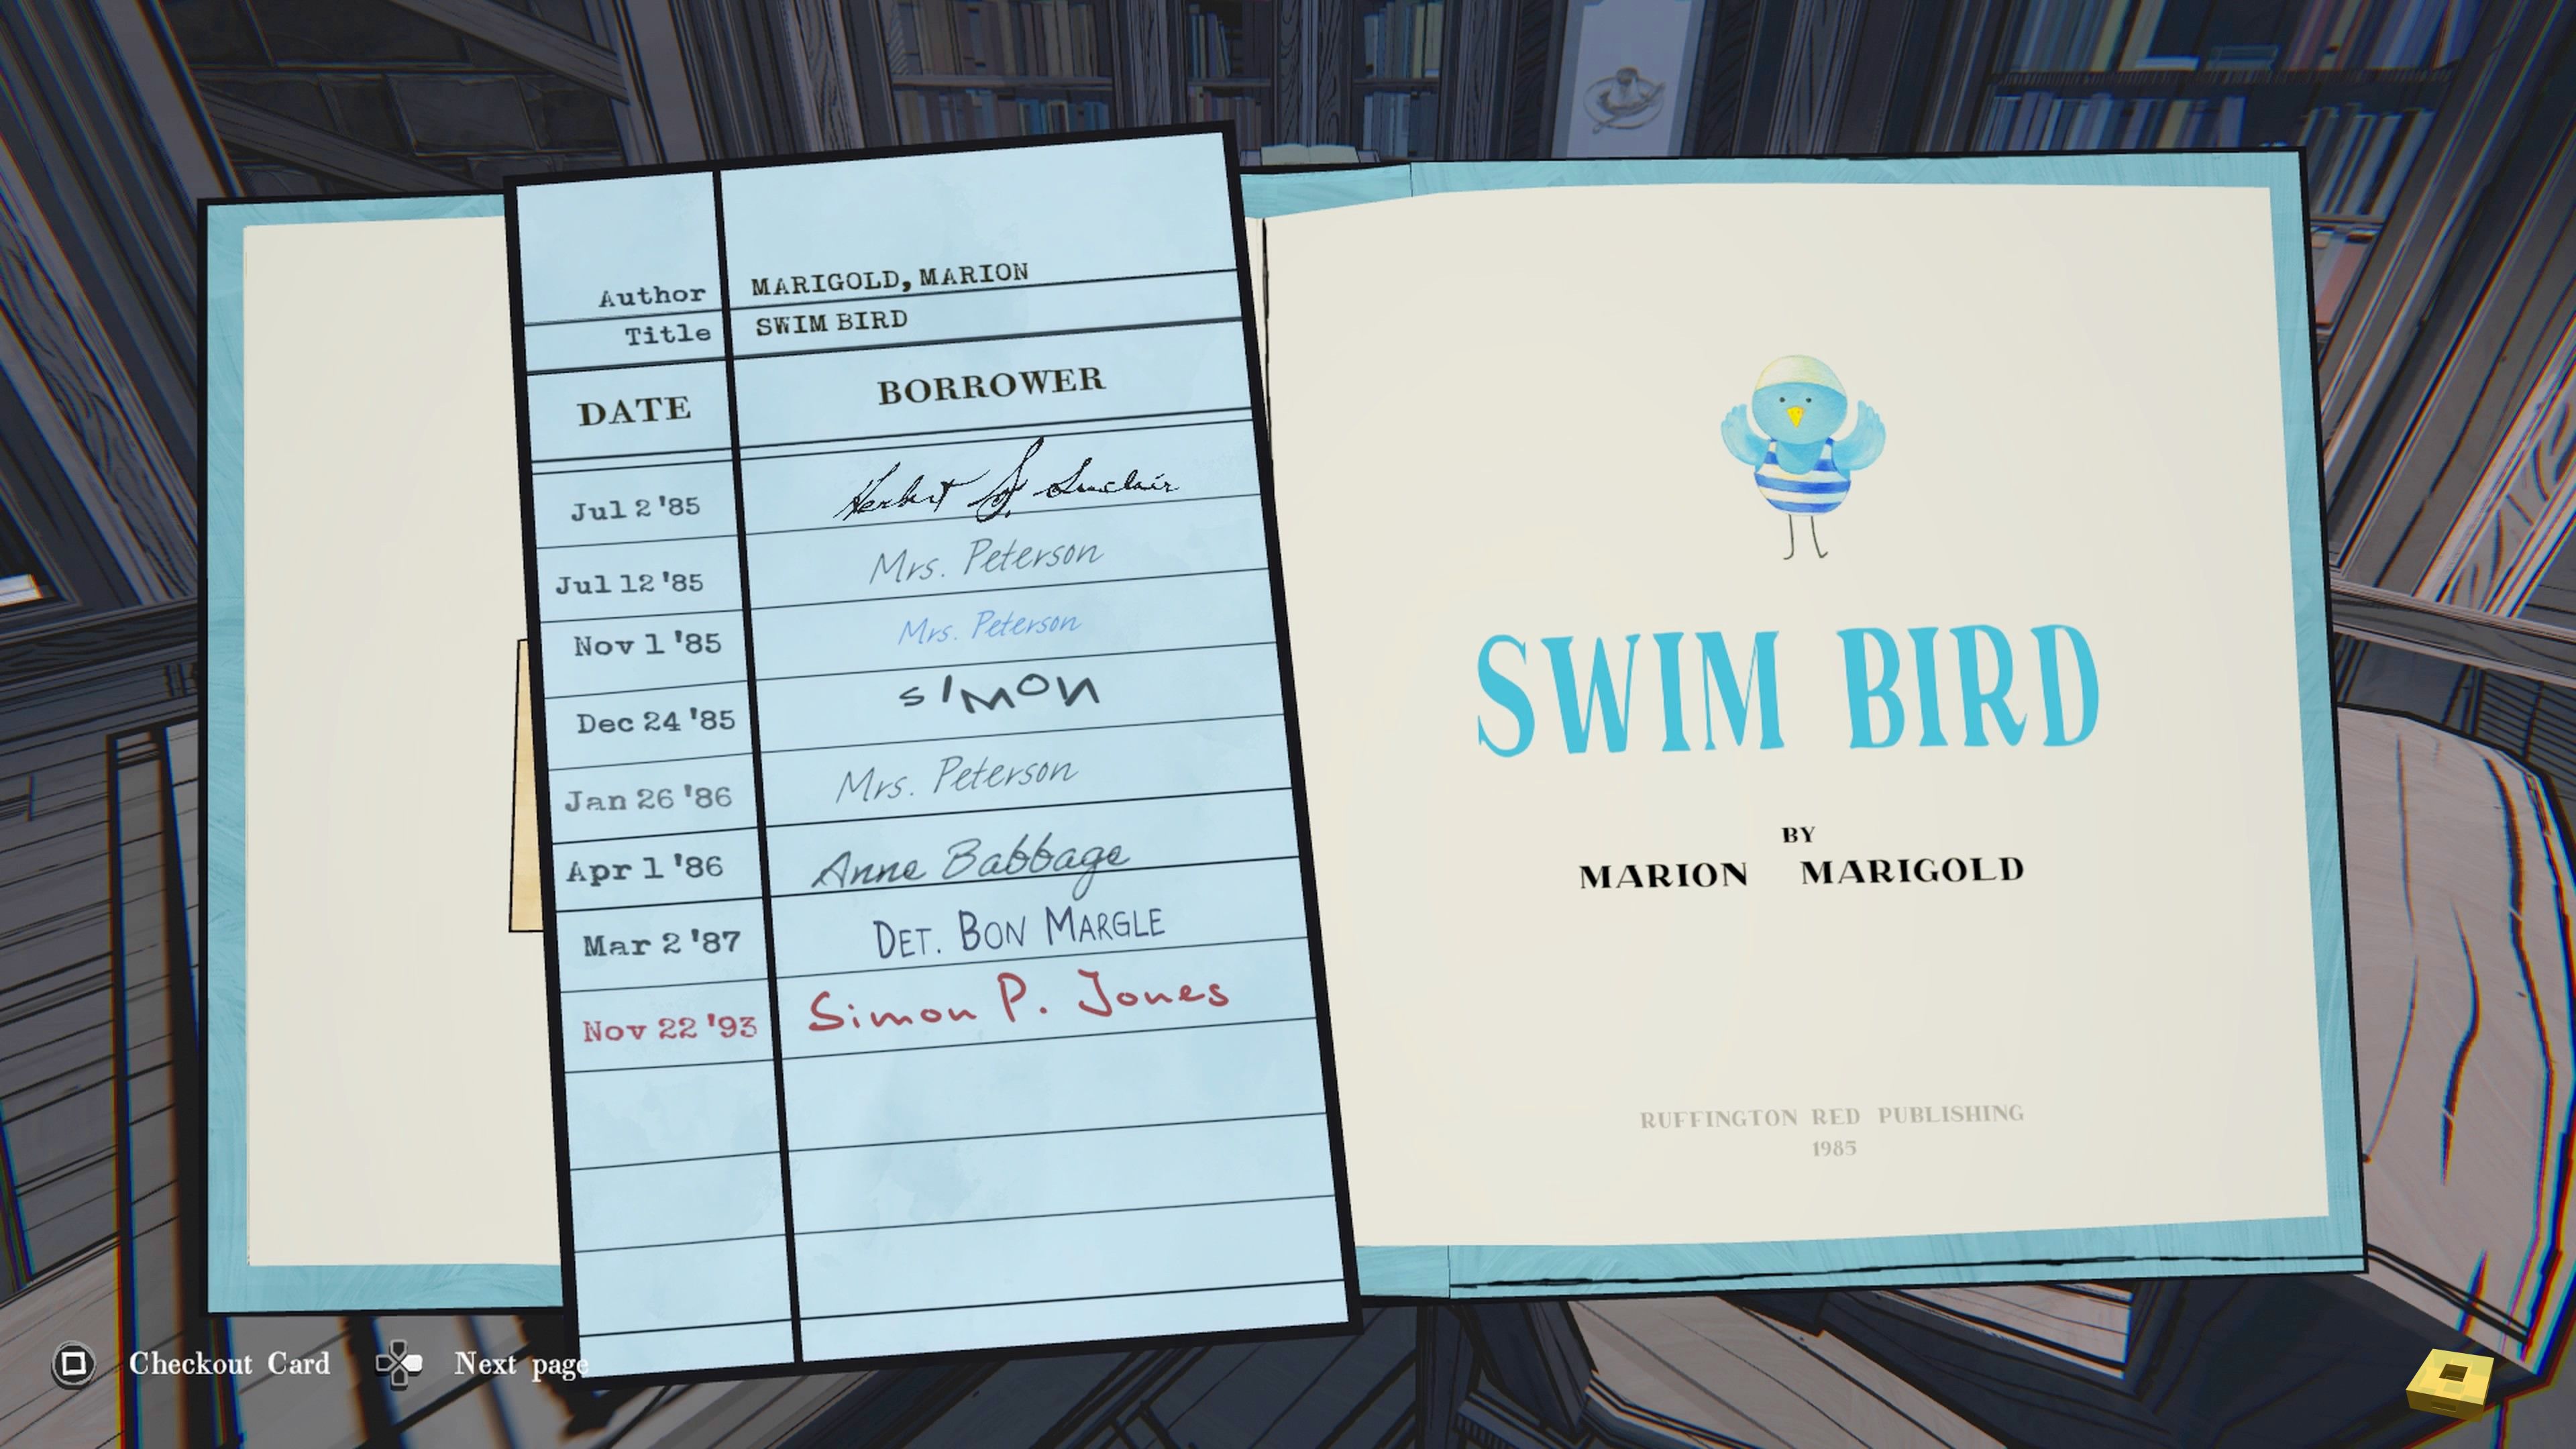 Author MARIGOLD, MARION
Title SWIM BIRD
DATE BORROWER
Jul 2 '85 Herbert S. Sinclair
Jul 12 '85 Mrs. Peterson
Nov 1 '85 Mrs. Peterson
Dec 24 '85 SIMON
Jan 26 '86 Mrs. Peterson
Apr 1 '86 Anne Babbage
Mar 2 '87 DET. BON MARGLE
Nov 22 '93 Simon P. Jones
SWIM BIRD
BY
MARION MARIGOLD
RUFFINGTON RED PUBLISHING
1985
Checkout Card Next page